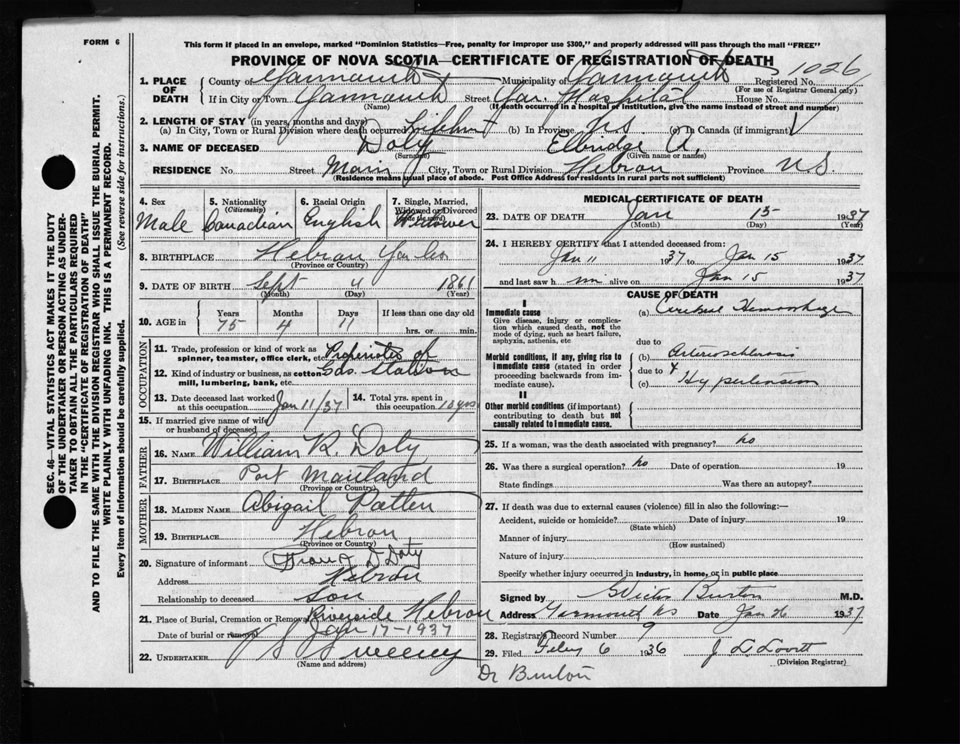 FORM 6
This form if placed in an envelope, marked "Dominion Statistics—Free, penalty for improper use $300," and properly addressed will pass through the mail "FREE"
PROVINCE OF NOVA SCOTIA—CERTIFICATE OF REGISTRATION OF DEATH
1026
1. PLACE OF DEATH County of Yarmouth Municipality of Yarmouth Registered No.
(For use of Registrar General only)
If in City or Town Yarmouth Street Yar. Hospital House No.
(Name) (If death occurred in a hospital or institution, give the name instead of street and number)
2. LENGTH OF STAY (in years, months and days)
(a) In City, Town or Rural Division where death occurred (b) In Province N.S. (c) In Canada (if immigrant)
3. NAME OF DECEASED Doty Elbridge A.
(Surname) (Given name or names)
RESIDENCE No. Street Main City, Town or Rural Division Hebron Province N.S.
(Residence means usual place of abode. Post Office Address for residents in rural parts not sufficient)
4. Sex Male
5. Nationality (Citizenship) Canadian
6. Racial Origin English
7. Single, Married, Widowed or Divorced Widower
8. BIRTHPLACE Hebron Yar Co
(Province or Country)
9. DATE OF BIRTH Sept 4 1861
(Month) (Day) (Year)
10. AGE in Years 75 Months 4 Days 11 If less than one day old hrs. or min.
OCCUPATION
11. Trade, profession or kind of work as spinner, teamster, office clerk, etc. Proprietor of
12. Kind of industry or business, as cotton mill, lumbering, bank, etc. Gas Station
13. Date deceased last worked at this occupation Jan 11/37 14. Total yrs. spent in this occupation 10 yrs
15. If married give name of wife or husband of deceased
FATHER
16. NAME William R. Doty
17. BIRTHPLACE Port Maitland
(Province or Country)
MOTHER
18. MAIDEN NAME Abigail Patten
19. BIRTHPLACE Hebron
(Province or Country)
20. Signature of informant D Doty
Address Hebron
Relationship to deceased Son
21. Place of Burial, Cremation or Removal Riverside Hebron
Date of burial or removal Jan 17-1937
22. UNDERTAKER Sweeney
(Name and address)
MEDICAL CERTIFICATE OF DEATH
23. DATE OF DEATH Jan 15 1937
(Month) (Day) (Year)
24. I HEREBY CERTIFY that I attended deceased from:
Jan 11 1937 to Jan 15 1937
and last saw h im alive on Jan 15 1937
CAUSE OF DEATH
I
Immediate cause
Give disease, injury or complication which caused death, not the mode of dying, such as heart failure, asphyxia, asthenia, etc
(a) Cerebral Hemorrhage
due to
Morbid conditions, if any, giving rise to immediate cause (stated in order proceeding backwards from immediate cause).
(b) Arteriosclerosis
due to &
(c) Hypertension
II
Other morbid conditions (if important) contributing to death but not causally related to immediate cause.
25. If a woman, was the death associated with pregnancy? no
26. Was there a surgical operation? no Date of operation 19
State findings Was there an autopsy?
27. If death was due to external causes (violence) fill in also the following:—
Accident, suicide or homicide? Date of injury 19
(State which)
Manner of injury
(How sustained)
Nature of injury
Specify whether injury occurred in industry, in home, or in public place
Signed by Burton M.D.
Address Yarmouth NS Date Jan 26 1937
28. Registrar's Record Number 9
29. Filed Feby 6 1936
(Division Registrar)
Dr Burton
SEC. 46—VITAL STATISTICS ACT MAKES IT THE DUTY
OF THE UNDERTAKER OR PERSON ACTING AS UNDERTAKER
TO OBTAIN ALL THE PARTICULARS REQUIRED
IN THE "CERTIFICATE OF REGISTRATION OF DEATH"
AND TO FILE THE SAME WITH THE DIVISION REGISTRAR WHO SHALL ISSUE THE BURIAL PERMIT.
WRITE PLAINLY WITH UNFADING INK. THIS IS A PERMANENT RECORD.
Every item of information should be carefully supplied. (See reverse side for instructions.)